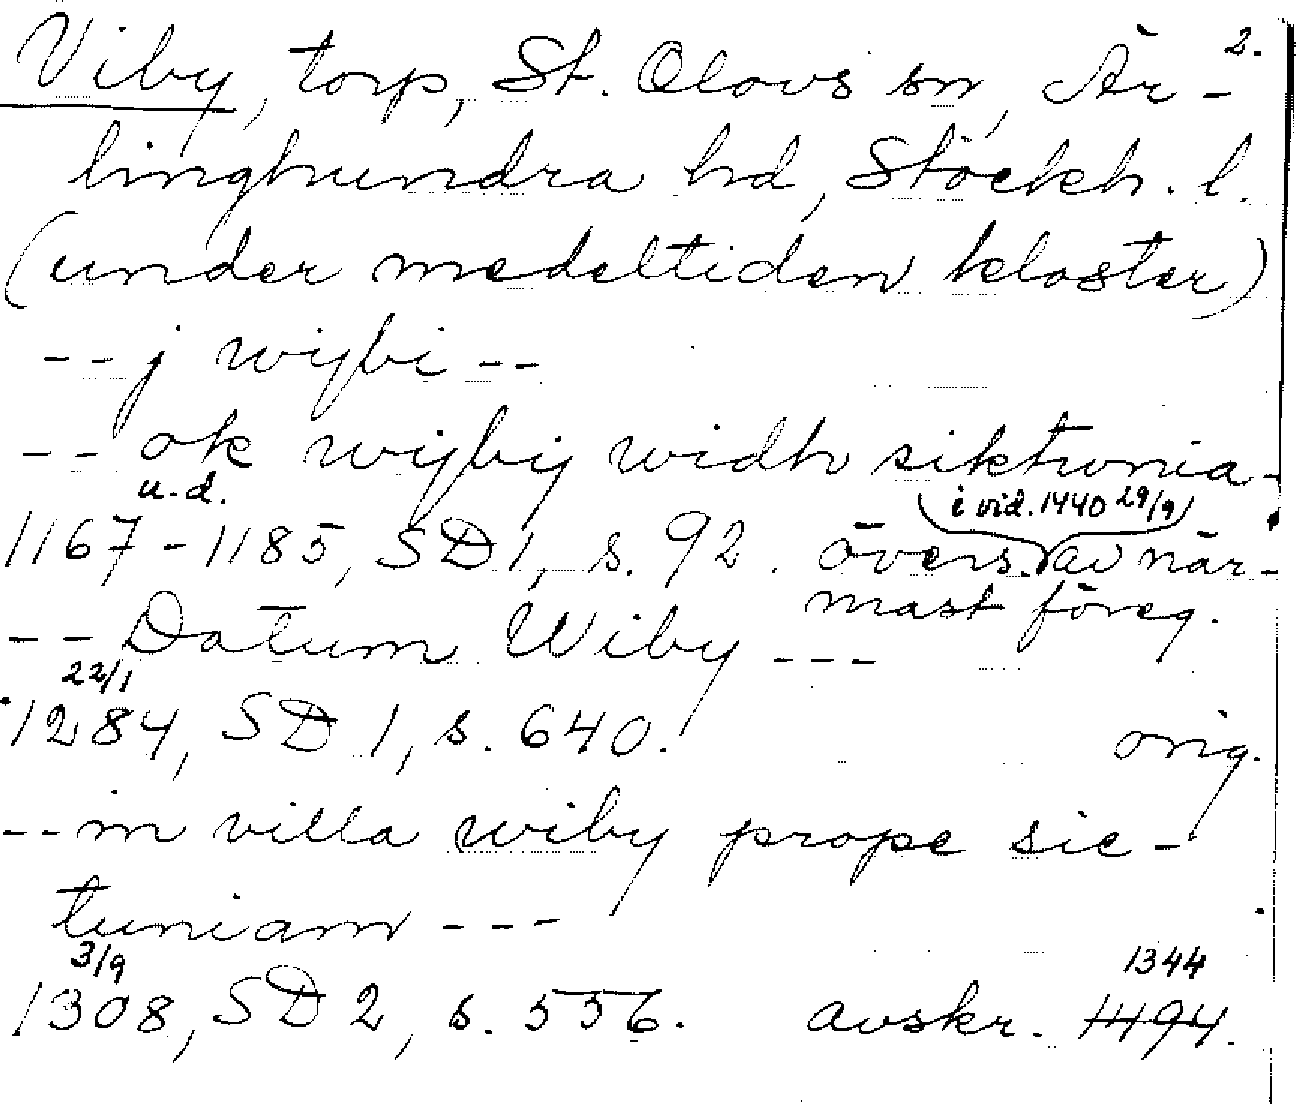 2.
Viby, torp, St. Olovs sn, Är-
linghundra hd, Stockh. l.
(under medeltiden kloster)
-- j wijbi --
-- ok wijbij widh siktwnia -
u. d.
i vid. 1440 29/9
1167-1185, SD 1, s. 92. övers. av när-
mast föreg.
-- Datum Wiby ---
22/1
1284, SD 1, s. 640. orig.
-- in villa wiby prope sic-
tuniam ---
3/9
1344
1308, SD 2, s. 556. avskr. 1494.